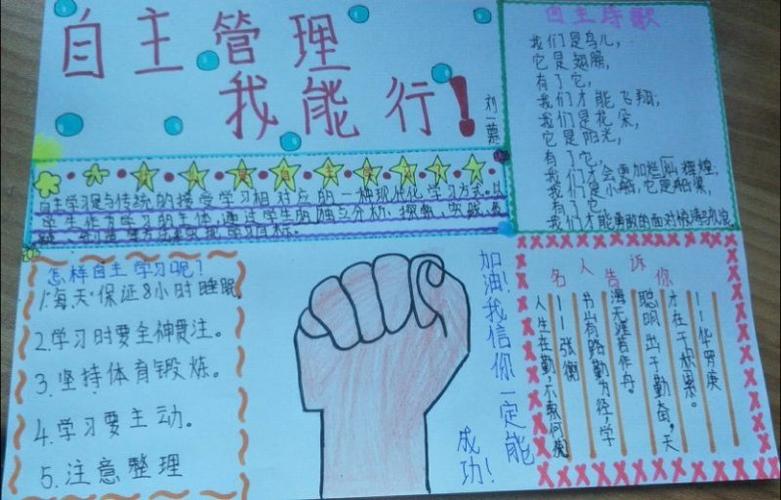 自主管理
我能行！
刘一蕙
自主诗歌
我们是鸟儿，
它是翅膀，
有了它，
我们才能飞翔；
我们是花朵，
它是阳光，
有了它，
我们才会更加灿烂辉煌；
我们是小船，它是船桨，
有了它
我们才能勇敢的面对惊涛
自主学习是与传统的接受学习相对应的一种现代化学习方式。以
学生作为学习的主体，通过学生的独立分析、探索、实践、质
学习目标。
怎样自主学习呢？
1.每天保证8小时睡眠
2.学习时要全神贯注。
3.坚持体育锻炼。
4.学习要主动。
5.注意整理
加油！我信你一定能
成功！
名人告诉你
——华罗庚
才在于积累。
聪明出于勤奋，天
海无涯苦作舟。
书山有路勤为径，学
——张衡
人生在勤，不索何获